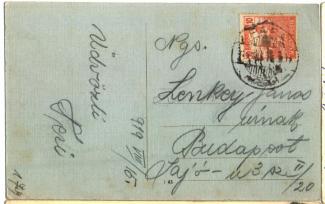 Üdvözli
Pori
919 VIII/15.
Ngs.
Lenkey János
úrnak
Budapest
Sajó-u 3 sz II/20